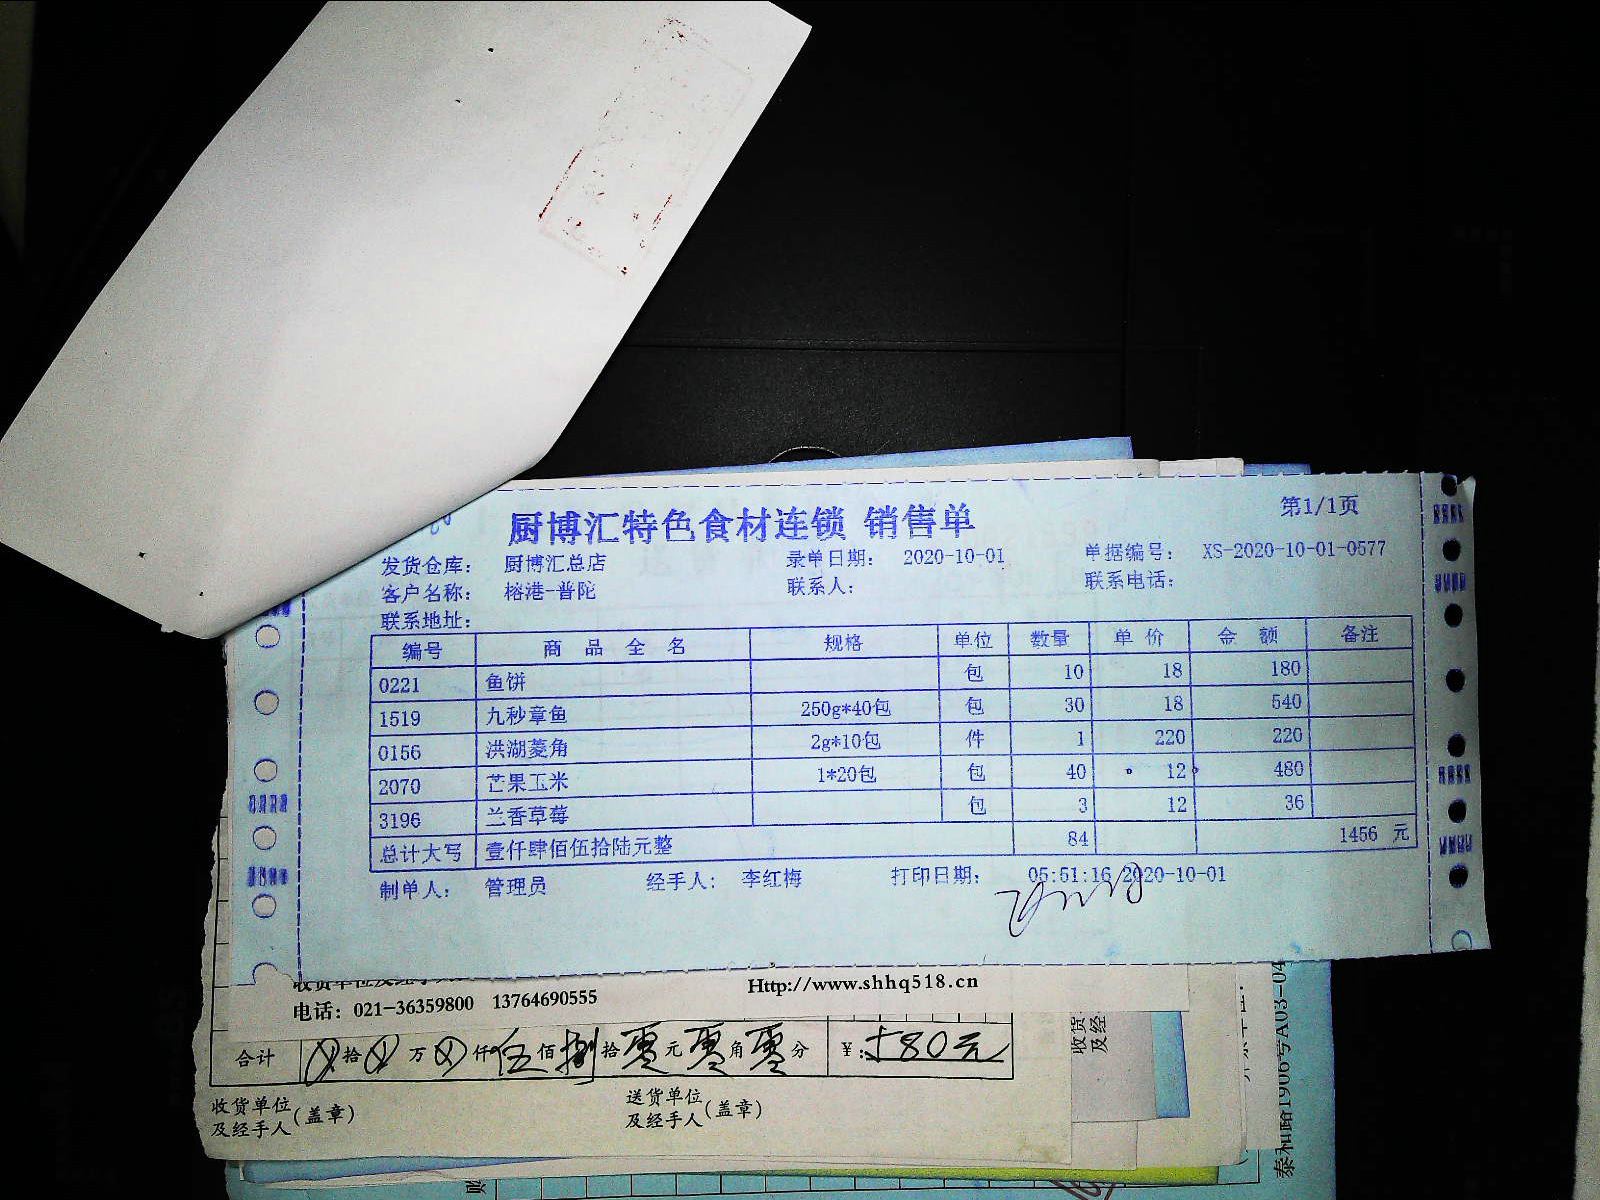 厨博汇特色食材连锁 销售单
第1/1页
发货仓库: 厨博汇总店 录单日期: 2020-10-01 单据编号: XS-2020-10-01-0577
客户名称: 榕港-普陀 联系人: 联系电话:
联系地址:
编号 商品全名 规格 单位 数量 单价 金额 备注
0221 鱼饼 包 10 18 180
1519 九秒章鱼 250g*40包 包 30 18 540
0156 洪湖菱角 2g*10包 件 1 220 220
2070 芒果玉米 1*20包 包 40 12 480
3196 兰香草莓 包 3 12 36
总计大写 壹仟肆佰伍拾陆元整 84 1456 元
制单人: 管理员 经手人: 李红梅 打印日期: 05:51:16 2020-10-01
电话: 021-36359800 13764690555
Http://www.shhq518.cn
合计 拾 万 仟 伍 佰 捌 拾 零 元 零 角 零 分 ¥: 580元
收货单位及经手人(盖章)
送货单位及经手人(盖章)
收货
及经
泰和路1906号A03-04